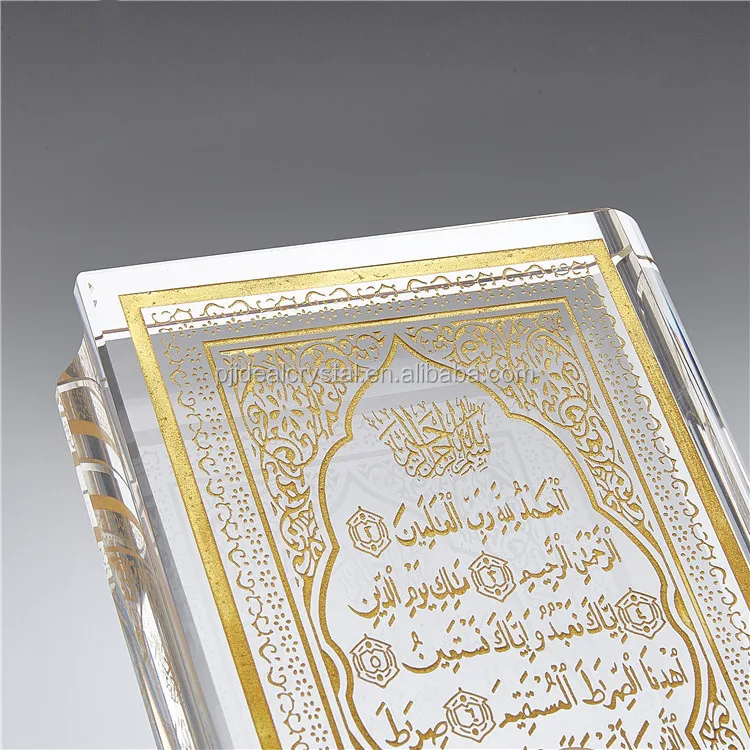 بِسْمِ اللَّهِ الرَّحْمَٰنِ الرَّحِيمِ
pjidealcrystal.en.alibaba.com
الْحَمْدُ لِلَّهِ رَبِّ الْعَٰلَمِينَ ٢
الرَّحْمَٰنِ الرَّحِيمِ ٣ مَٰلِكِ يَوْمِ الدِّينِ
٤ إِيَّاكَ نَعْبُدُ وَإِيَّاكَ نَسْتَعِينُ ٥
اهْدِنَا الصِّرَٰطَ الْمُسْتَقِيمَ ٦ صِرَٰطَ